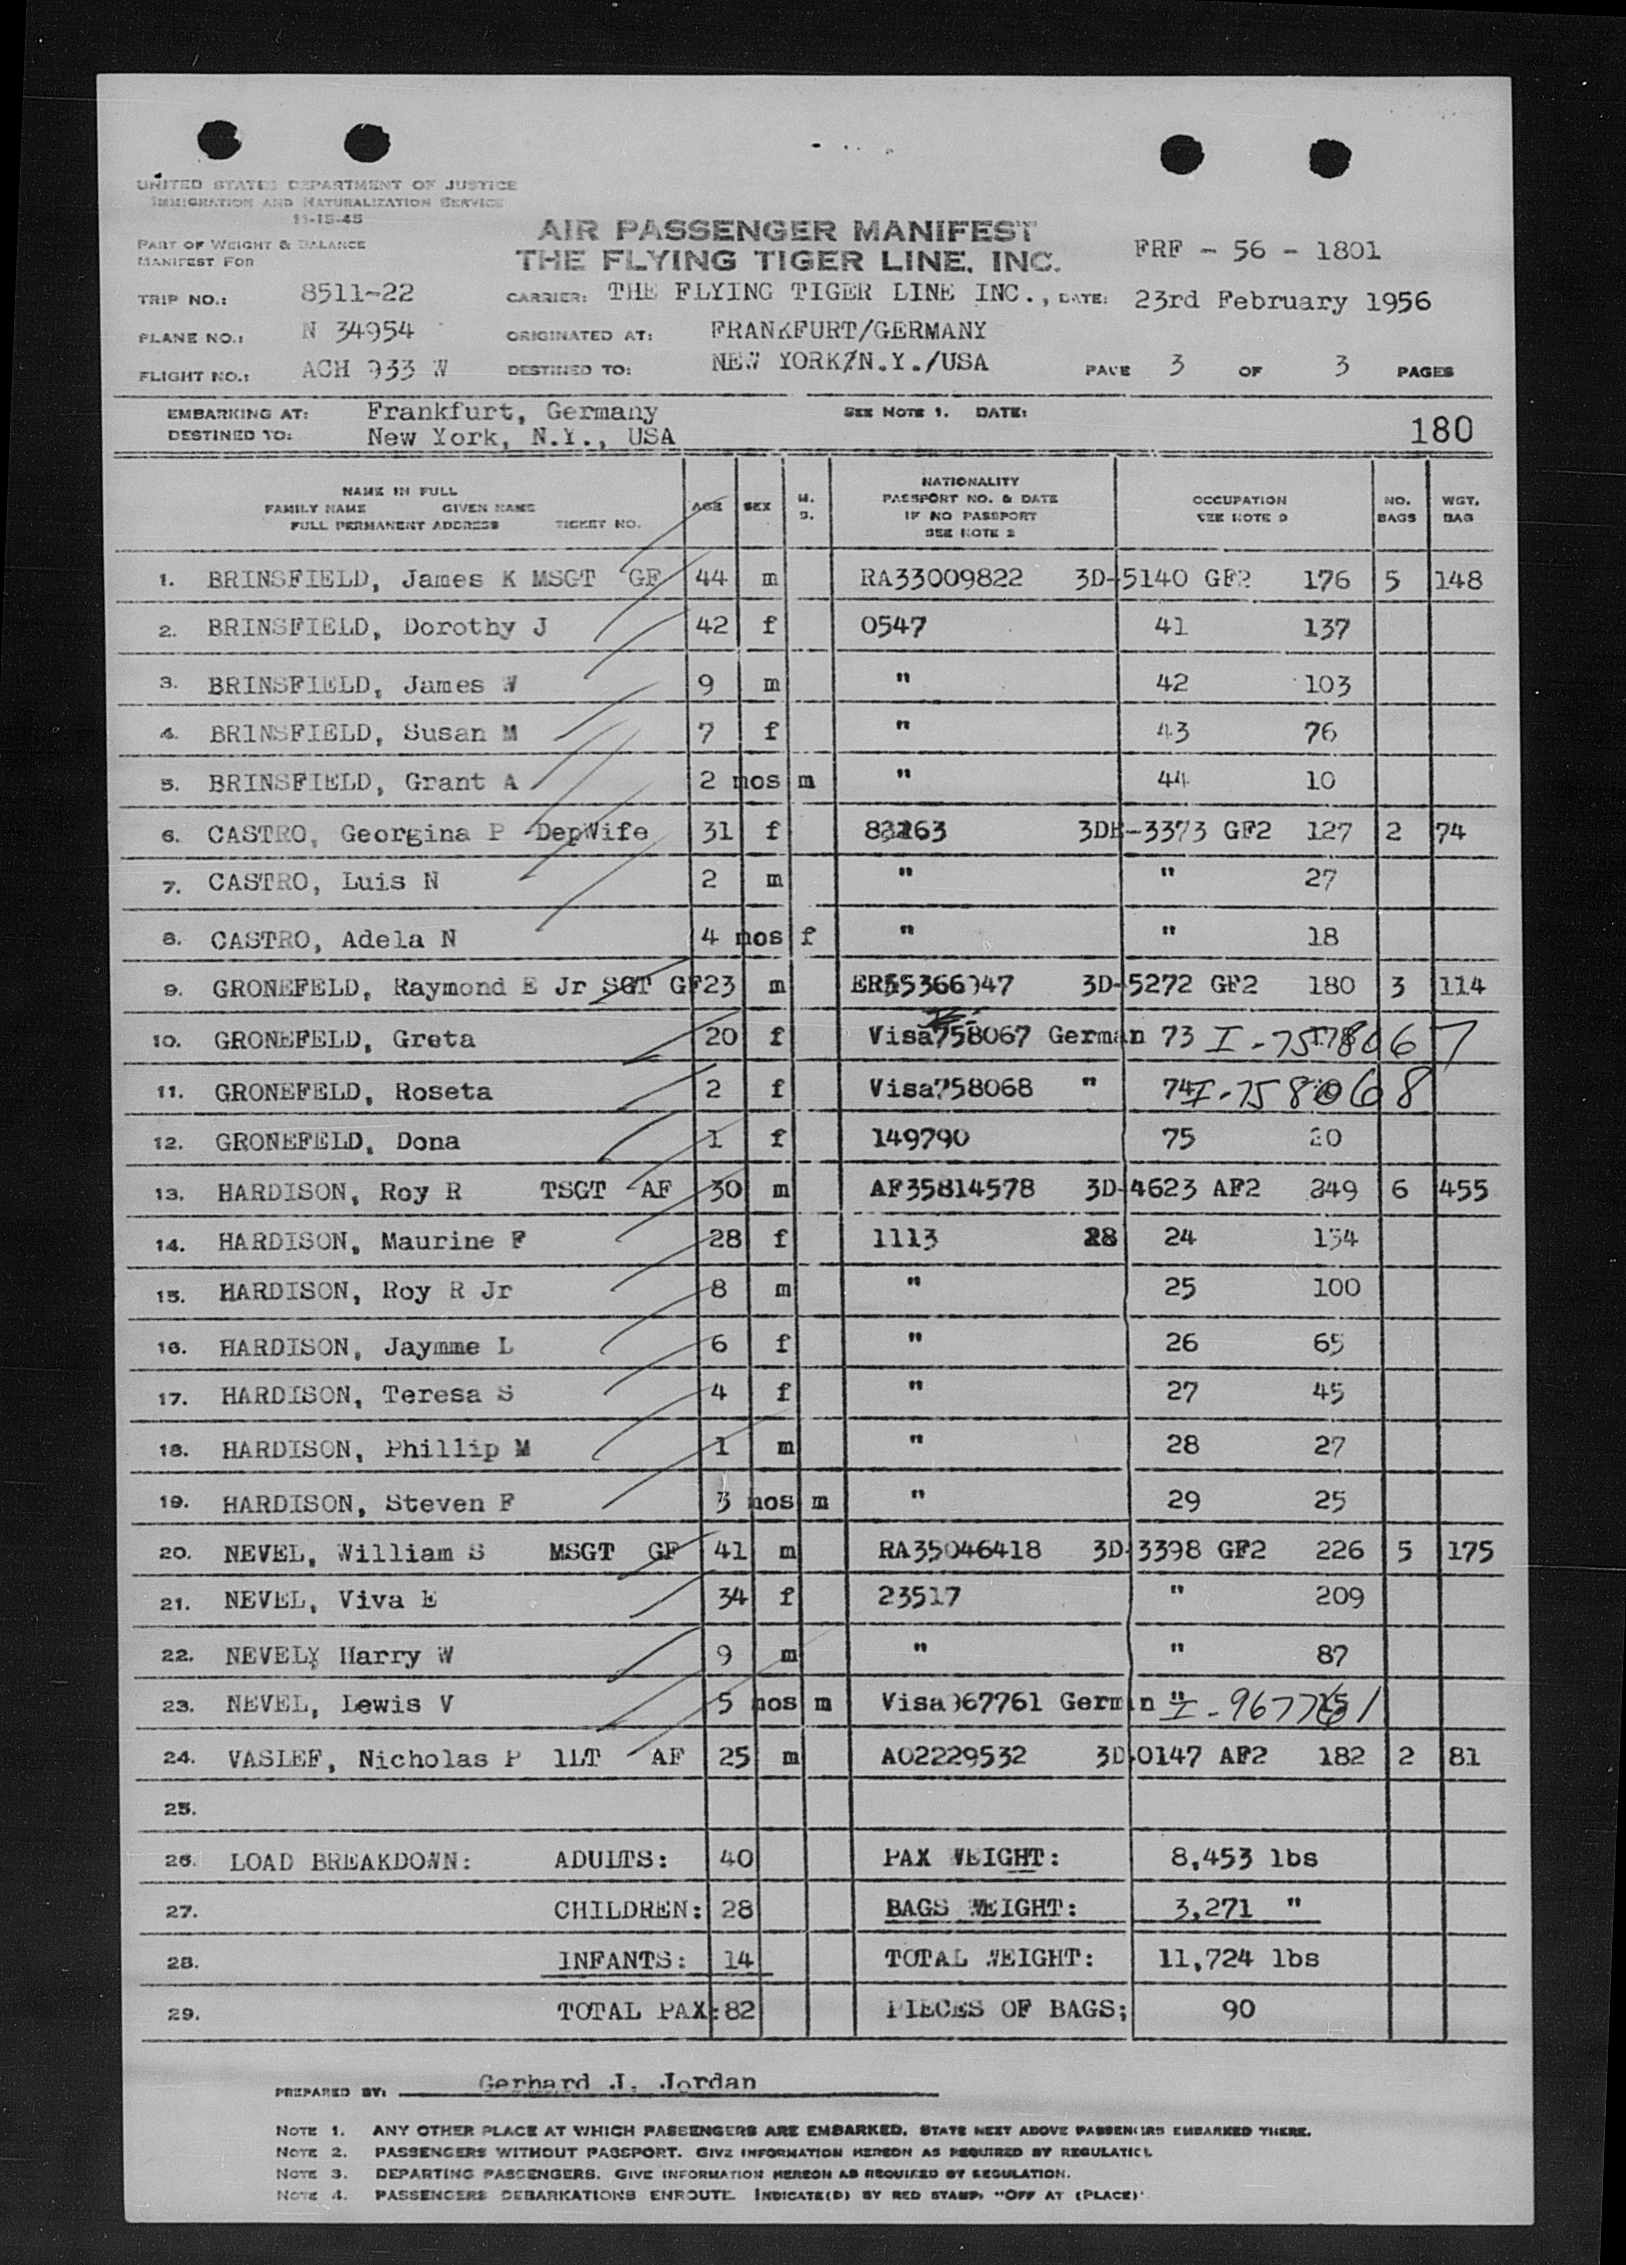 UNITED STATES DEPARTMENT OF JUSTICE
IMMIGRATION AND NATURALIZATION SERVICE
11-15-45
PART OF WEIGHT & BALANCE
MANIFEST FOR
AIR PASSENGER MANIFEST
THE FLYING TIGER LINE, INC.
FRF - 56 - 1801
TRIP NO.: 8511-22 CARRIER: THE FLYING TIGER LINE INC., DATE: 23rd February 1956
PLANE NO.: N 34954 ORIGINATED AT: FRANKFURT/GERMANY
FLIGHT NO.: ACH 933 W DESTINED TO: NEW YORK/N.Y./USA PAGE 3 OF 3 PAGES
EMBARKING AT: Frankfurt, Germany SEE NOTE 1. DATE:
DESTINED TO: New York, N.Y., USA 180
NAME IN FULL
FAMILY NAME GIVEN NAME
FULL PERMANENT ADDRESS TICKET NO.
AGE SEX M. S.
NATIONALITY
PASSPORT NO. & DATE
IF NO PASSPORT
SEE NOTE 2
OCCUPATION
SEE NOTE
NO. BAGS
WGT. BAG
1. BRINSFIELD, James K MSGT GF 44 m RA33009822 3D-5140 GF2 176 5 148
2. BRINSFIELD, Dorothy J 42 f 0547 41 137
3. BRINSFIELD, James W 9 m " 42 103
4. BRINSFIELD, Susan M 7 f " 43 76
5. BRINSFIELD, Grant A 2 mos m " 44 10
6. CASTRO, Georgina P -DepWife 31 f 3DE-3373 GF2 127 2 74
7. CASTRO, Luis N 2 m " " 27
8. CASTRO, Adela N 4 mos f " " 18
9. GRONEFELD, Raymond E Jr SGT GF 23 m 3D-5272 GF2 180 3 114
10. GRONEFELD, Greta 20 f Visa758067 German 73 I-758067
11. GRONEFELD, Roseta 2 f Visa758068 " 74 I-758068
12. GRONEFELD, Dona 1 f 149790 75 20
13. HARDISON, Roy R TSGT AF 30 m AF35814578 3D-4623 AF2 249 6 455
14. HARDISON, Maurine F 28 f 1113 24 134
15. HARDISON, Roy R Jr 8 m " 25 100
16. HARDISON, Jaymme L 6 f " 26 65
17. HARDISON, Teresa S 4 f " 27 45
18. HARDISON, Phillip M 1 m " 28 27
19. HARDISON, Steven F 3 mos m " 29 25
20. NEVEL, William S MSGT GF 41 m RA35046418 3D-3398 GF2 226 5 175
21. NEVEL, Viva E 34 f 23517 " 209
22. NEVEL, Harry W 9 m " " 87
23. NEVEL, Lewis V 5 mos m Visa967761 German " I-967761
24. VASLEF, Nicholas P 1LT AF 25 m AO2229532 3D-0147 AF2 182 2 81
25.
26. LOAD BREAKDOWN: ADULTS: 40 PAX WEIGHT: 8,453 lbs
27. CHILDREN: 28 BAGS WEIGHT: 3,271 "
28. INFANTS: 14 TOTAL WEIGHT: 11,724 lbs
29. TOTAL PAX: 82 PIECES OF BAGS; 90
PREPARED BY: Gerhard J. Jordan
NOTE 1. ANY OTHER PLACE AT WHICH PASSENGERS ARE EMBARKED. STATE NEXT ABOVE PASSENGERS EMBARKED THERE.
NOTE 2. PASSENGERS WITHOUT PASSPORT. GIVE INFORMATION HEREON AS REQUIRED BY REGULATION.
NOTE 3. DEPARTING PASSENGERS. GIVE INFORMATION HEREON AS REQUIRED BY REGULATION.
NOTE 4. PASSENGERS DEBARKATIONS ENROUTE. INDICATE(D) BY RED STAMP, "OFF AT (PLACE)"